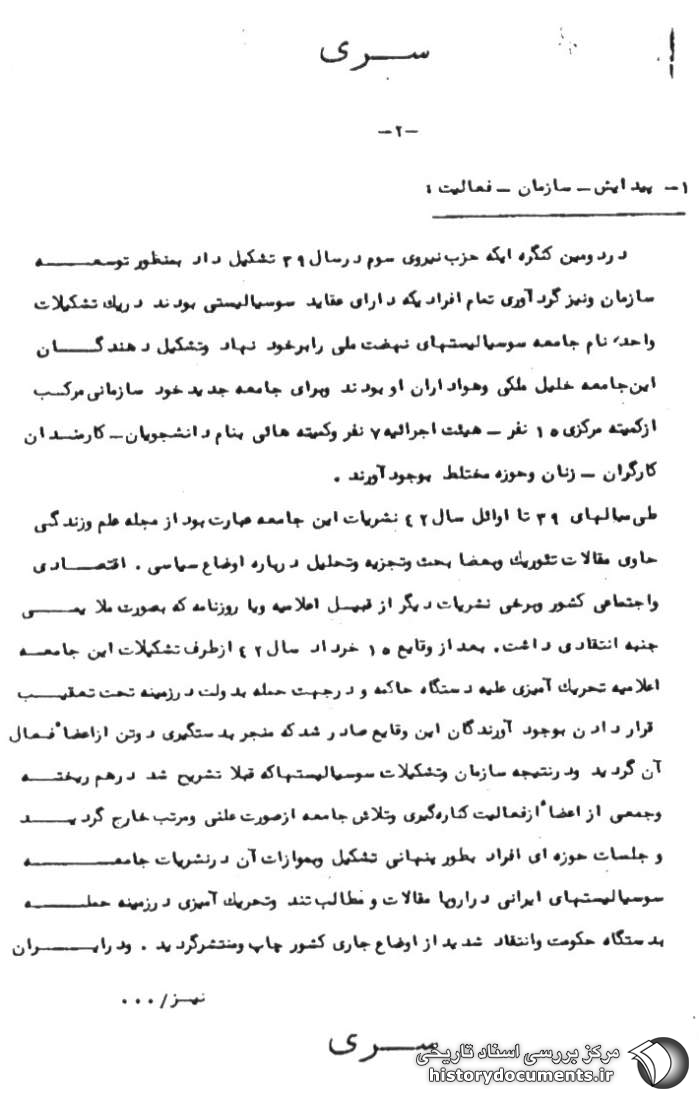 سری
-۲-
۱- پیدایش - سازمان - فعالیت :
در دومین کنگره ایکه حزب نیروی سوم در سال ۳۹ تشکیل داد بمنظور توسعه
سازمان و نیز گرد آوری تمام افراد یکه دارای عقاید سوسیالیستی بودند در یک تشکیلات
واحد، نام جامعه سوسیالیستهای نهضت ملی را بر خود نهاد و تشکیل دهندگان
این جامعه خلیل ملکی و هواداران او بودند و برای جامعه جدید خود سازمانی مرکب
از کمیته مرکزی ۱۵ نفر - هیئت اجرائیه ۷ نفر و کمیته هائی بنام دانشجویان - کارمندان
کارگران - زنان و حوزه مختلط بوجود آورند .
طی سالهای ۳۹ تا اوائل سال ۴۲ نشریات این جامعه عبارت بود از مجله علم و زندگی
حاوی مقالات تئوریک و بعضا بحث و تجزیه و تحلیل درباره اوضاع سیاسی . اقتصادی
و اجتماعی کشور و برخی نشریات دیگر از قبیل اعلامیه و یا روزنامه که بصورت ملایمی
جنبه انتقادی داشت . بعد از وقایع ۱۵ خرداد سال ۴۲ از طرف تشکیلات این جامعه
اعلامیه تحریک آمیزی علیه دستگاه حاکمه و در جهت حمله بدولت در زمینه تحت تعقیب
قرار دادن بوجود آورندگان این وقایع صادر شد که منجر بدستگیری دو تن از اعضاء فعال
آن گردید و در نتیجه سازمان و تشکیلات سوسیالیستها که قبلا تشریح شد درهم ریخته
و جمعی از اعضاء از فعالیت کناره گیری و تلاش جامعه از صورت علنی و مرتب خارج گردید
و جلسات حوزه ای افراد بطور پنهانی تشکیل و بموازات آن در نشریات جامعه
سوسیالیستهای ایرانی در اروپا مقالات و مطالب تند و تحریک آمیزی در زمینه حمله
بدستگاه حکومت و انتقاد شدید از اوضاع جاری کشور چاپ و منتشر گردید . و در ایران
نیز / ...
سری
مرکز بررسی اسناد تاریخی
historydocuments.ir